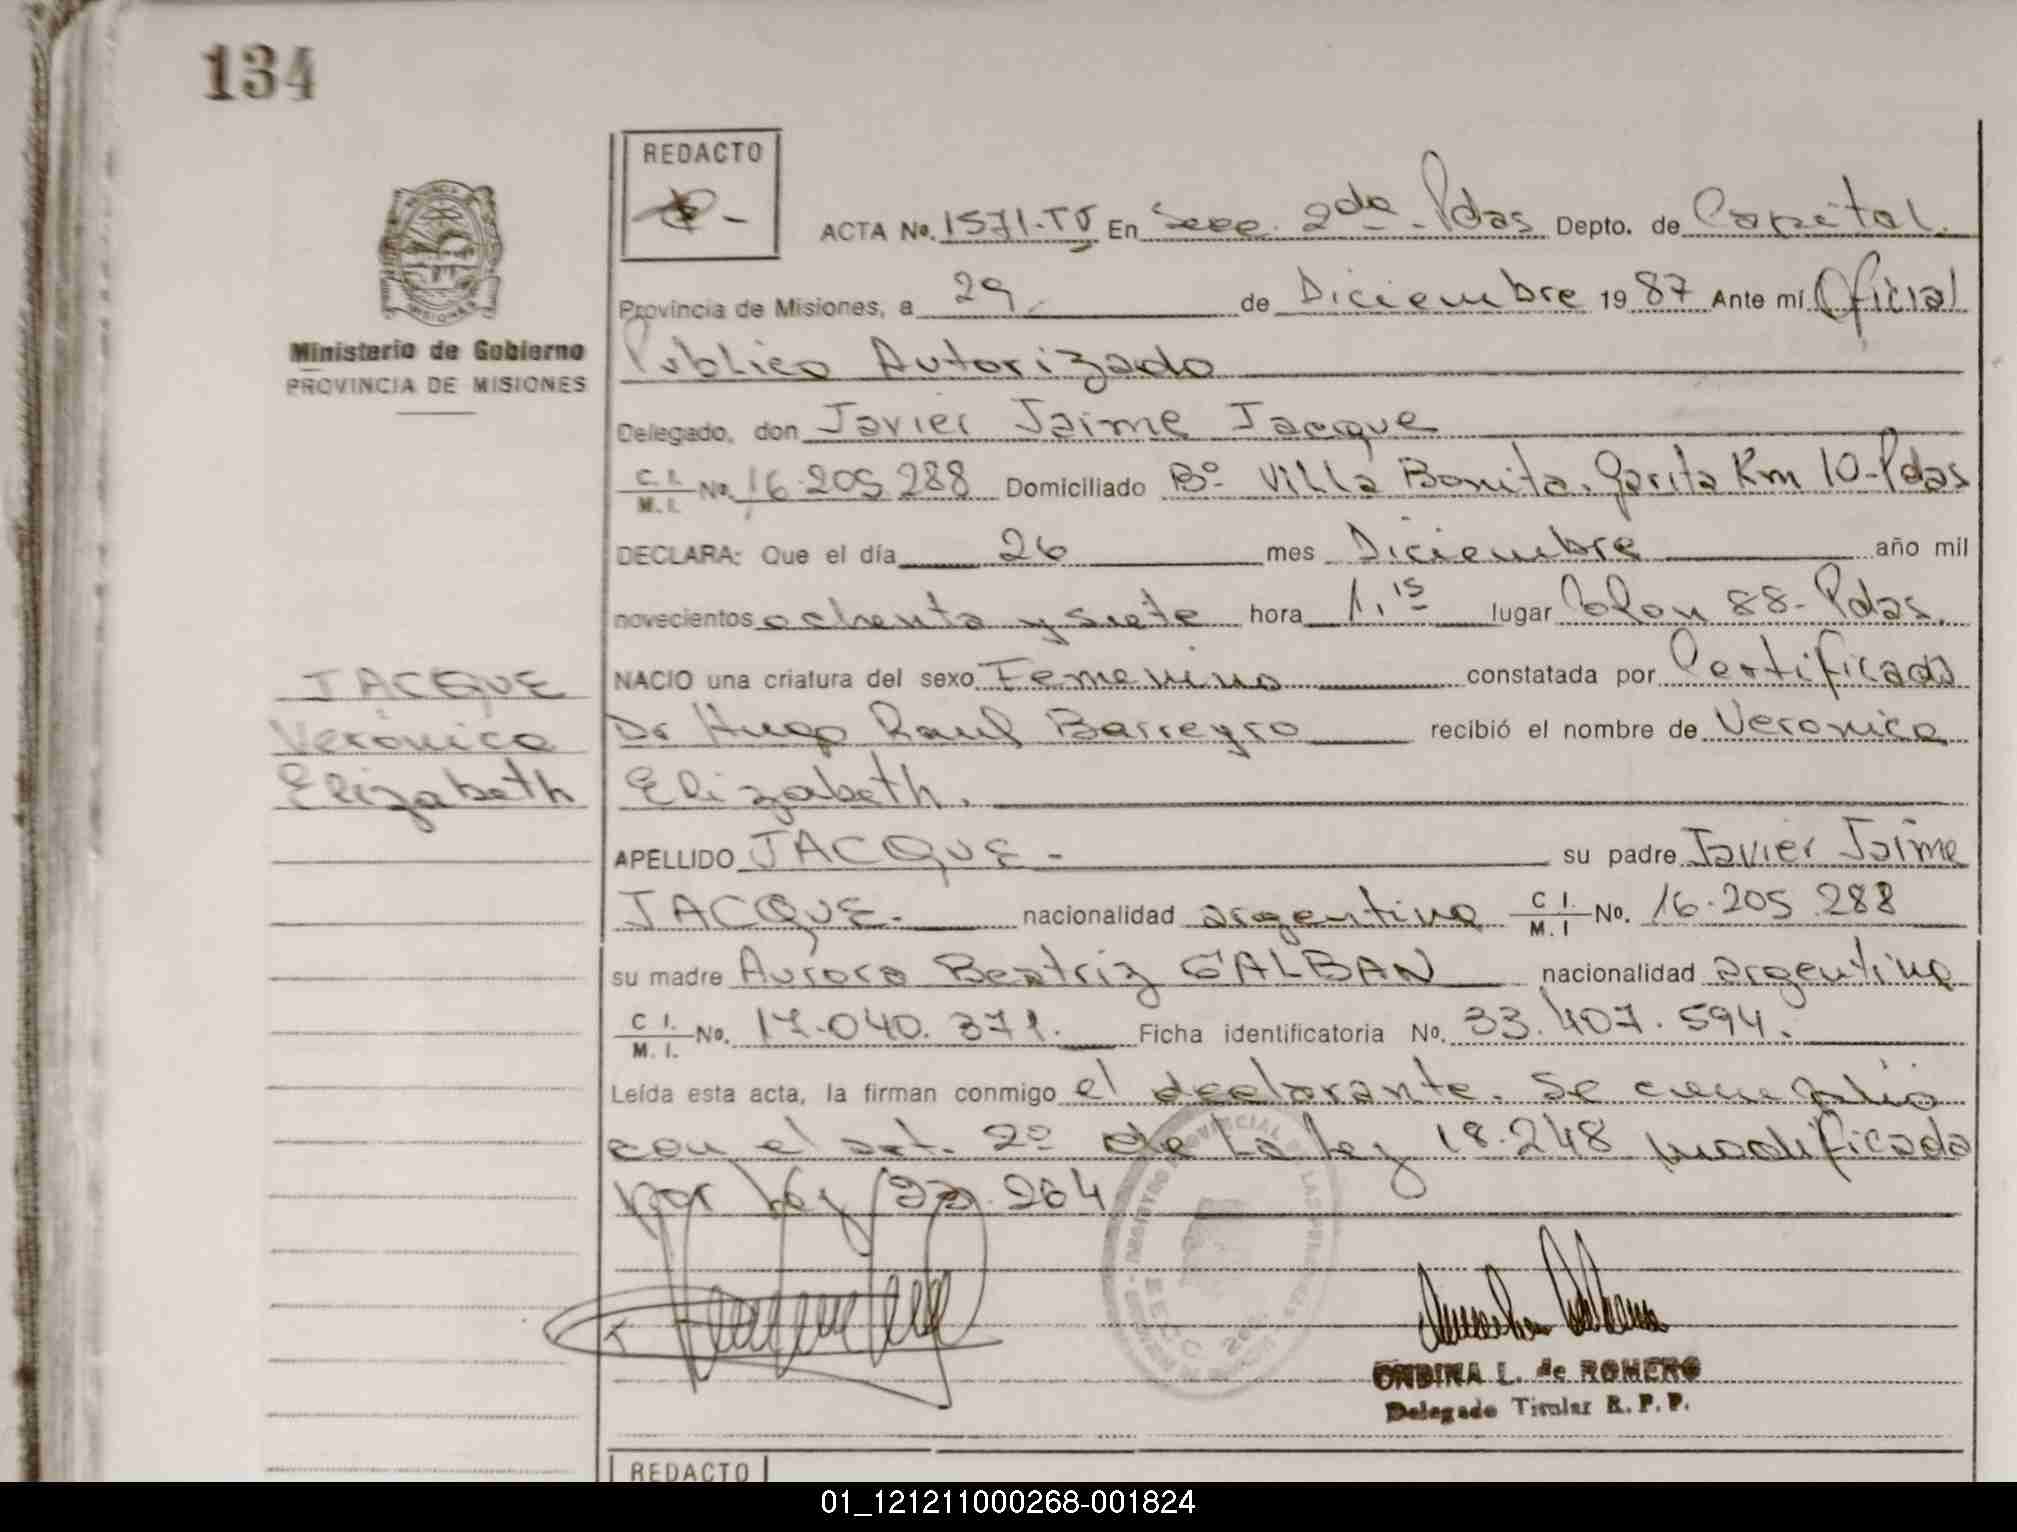 134
REDACTO
ACTA No. 1571-TV En Secc. 2da - Pdas Depto. de Capital.
Provincia de Misiones, a 29 de Diciembre 1987 Ante mí Oficial
Ministerio de Gobierno
PROVINCIA DE MISIONES
Publico Autorizado
Delegado, don Javier Jaime Jacque
C. I. M. I. No. 16.205.288 Domiciliado Bº Villa Bonita. Garita Km 10-Pdas
DECLARA: Que el día 26 mes Diciembre año mil
novecientos ochenta y siete hora 1.15 lugar Colon 88- Pdas.
JACQUE
Veronica
Elizabeth
NACIO una criatura del sexo Femenino constatada por Certificado
Dr Hugo Raul Barreyro recibió el nombre de Veronica
Elizabeth.
APELLIDO JACQUE - su padre Javier Jaime
JACQUE. nacionalidad argentina C I. M. I No. 16.205.288
su madre Aurora Beatriz GALBAN nacionalidad argentina
C I. M. I. No. 17.040.371. Ficha identificatoria No. 33.407.594.
Leída esta acta, la firman conmigo el declarante. Se cumplió
con el art. 2º de la Ley 18.248 modificada
por Ley 23.264
ONDINA L. de ROMERO
Delegado Titular R. P. P.
REDACTO
01_121211000268-001824